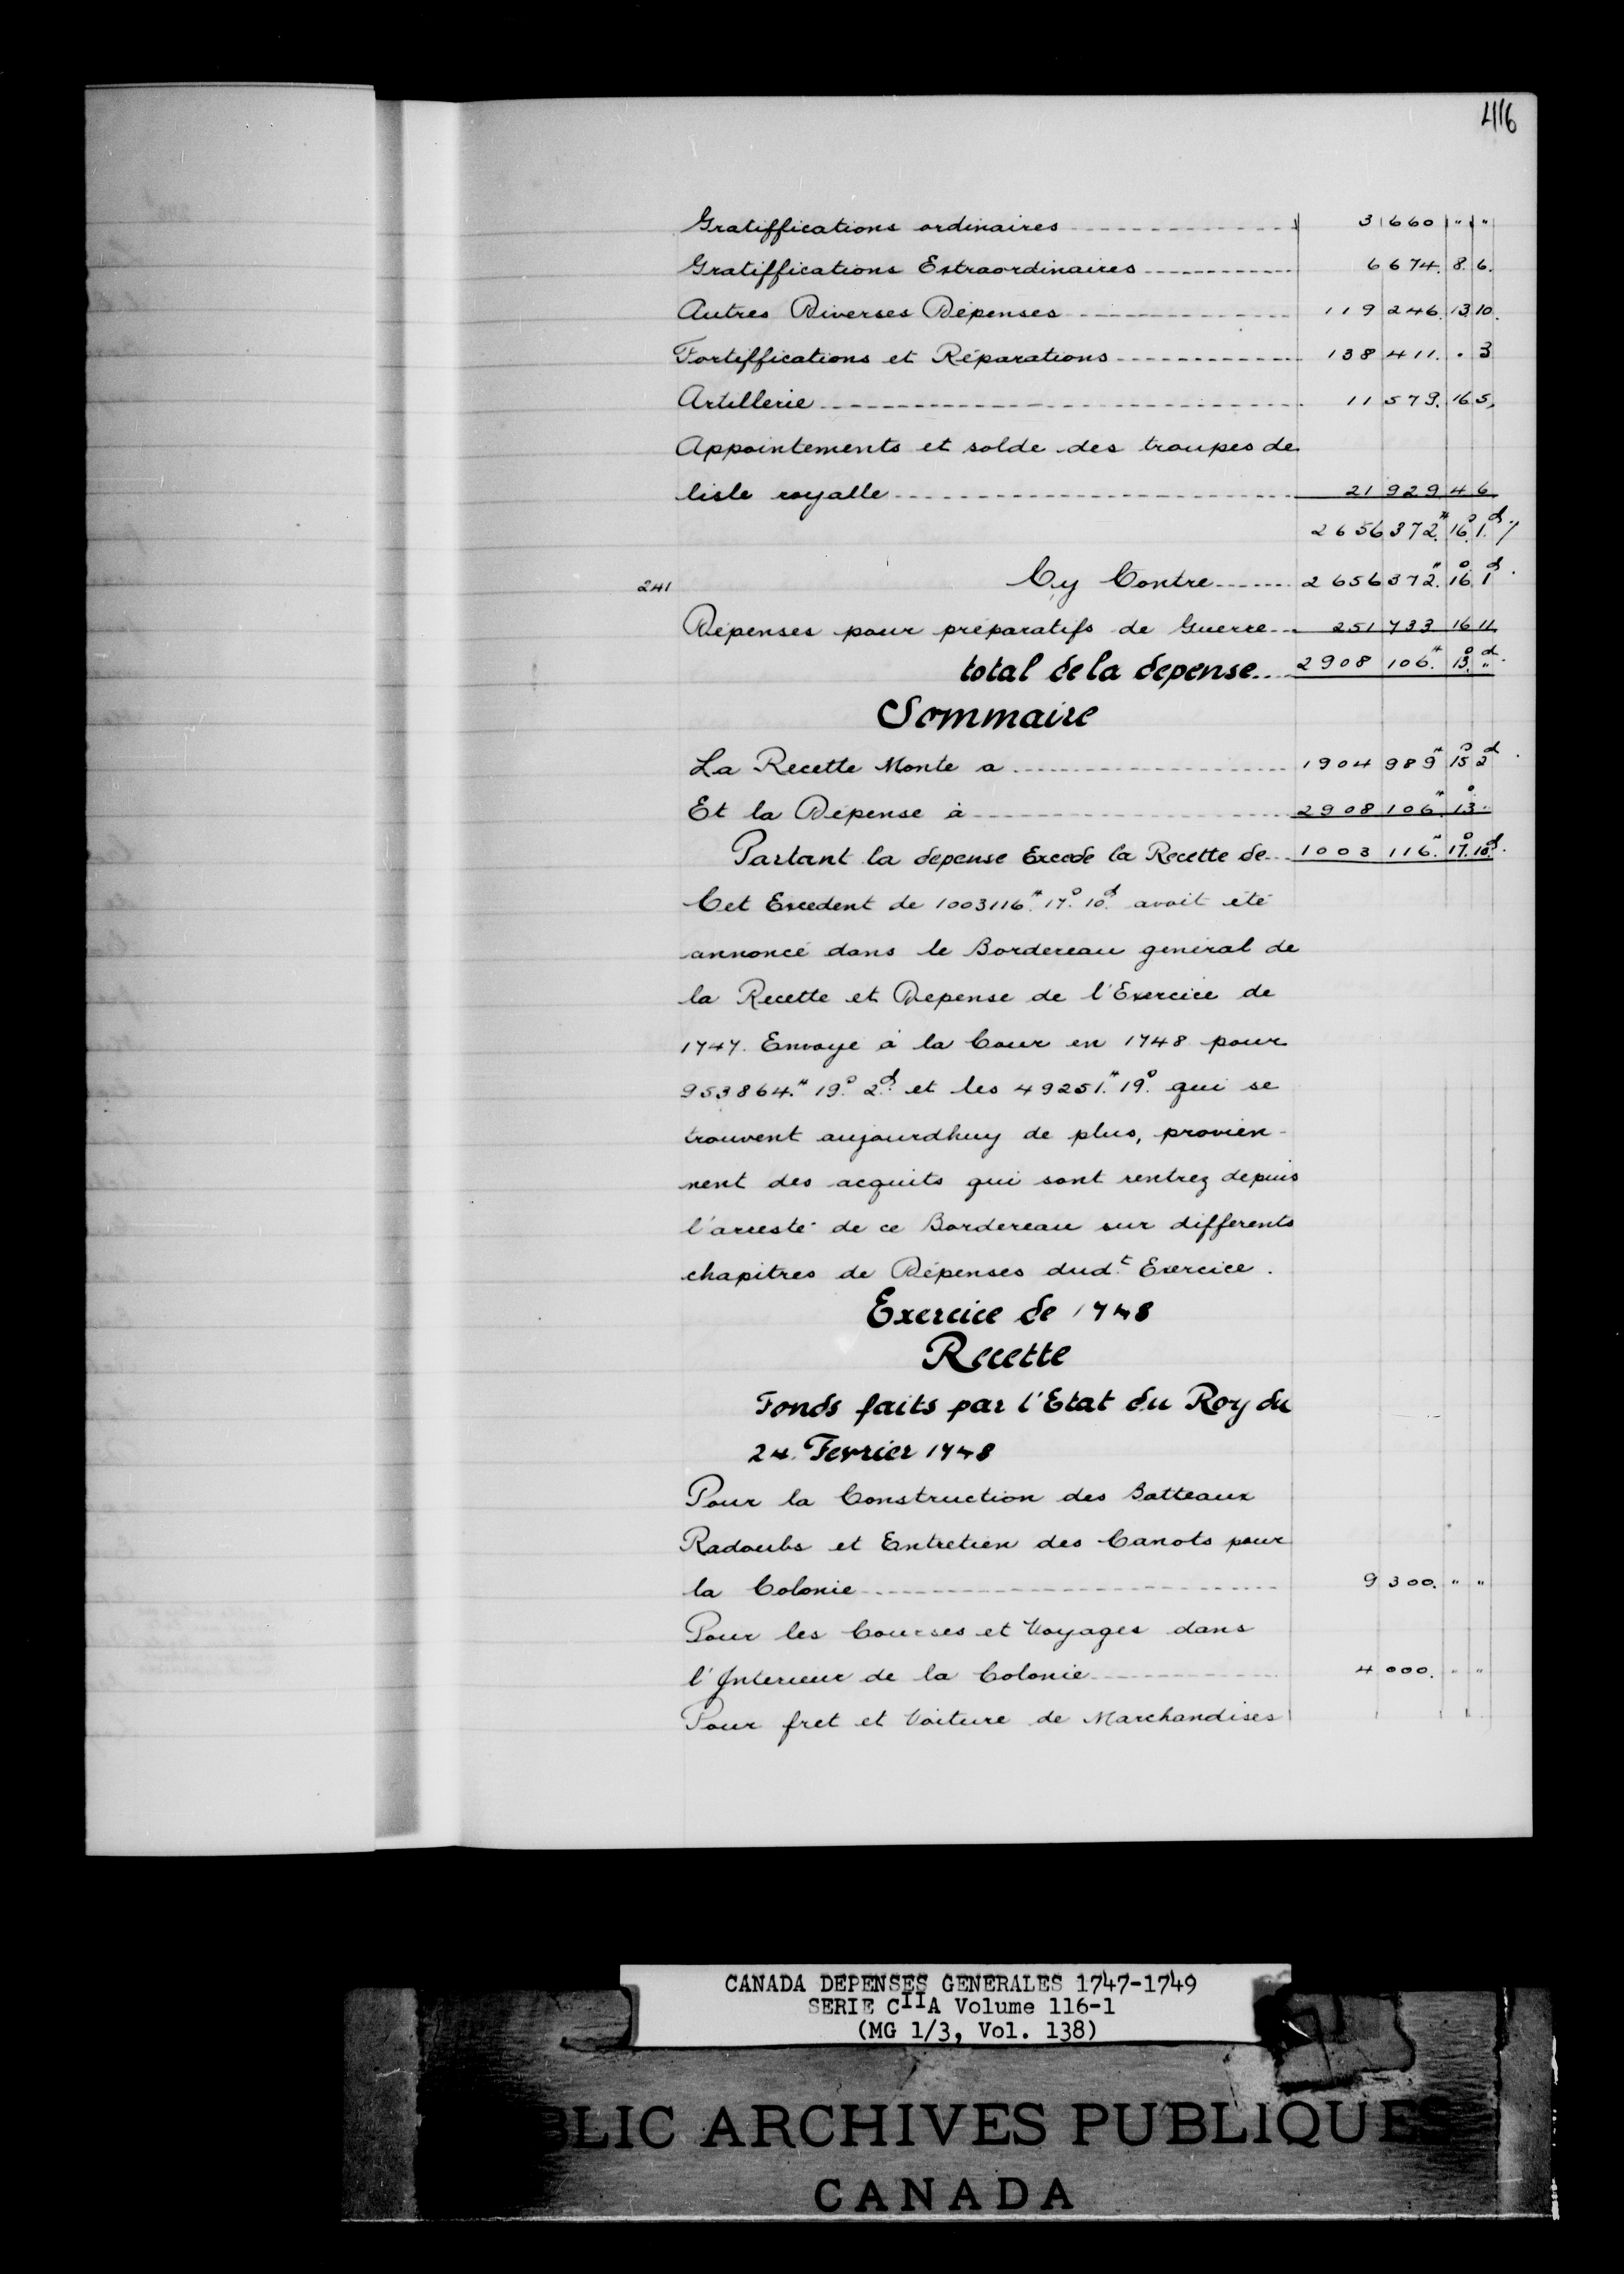 416
Gratiffications ordinaires 3 660 " "
Gratiffications Extraordinaires 6 674. 8. 6.
Autres Diverses Dépenses 119 246. 13. 10.
Fortiffications et Réparations 138 411. . 3
Artillerie 11 579. 16 5,
Appointements et solde des troupes de
lisle royalle 21 929 4 6
2656 372.# 16.s 1.d /
241 Cy Contre 2656 372.# 16.s 1d.
Dépenses pour préparatifs de Guerre 251 733 16 11
total de la depense 2908 106.# 13.s "d.
Sommaire
La Recette Monte a 1904 989# 15s 2d.
Et la Dépense à 2908 106# 13s "
Partant la depense Excede la Recette de 1003 116.# 17.s 10.d.
Cet Excedent de 1003116.# 17.s 10.d avoit été
annoncé dans le Bordereau général de
la Recette et Depense de l'Exercice de
1747. Envoyé à la Cour en 1748 pour
953864.# 19.s 2.d et les 49251.# 19.s qui se
trouvent aujourdhuy de plus, provien-
nent des acquits qui sont rentrez depuis
l'arresté de ce Bordereau sur differents
chapitres de Dépenses dud.t Exercice.
Exercice de 1748
Recette
Fonds faits par l'Etat du Roy du
24. Fevrier 1748
Pour la Construction des Batteaux
Radoubs et Entretien des Canots pour
la Colonie 9 300. " "
Pour les Courses et Voyages dans
l'Interieur de la Colonie 4 000. " "
Pour fret et Voiture de Marchandises
CANADA DEPENSES GENERALES 1747-1749
SERIE CIIA Volume 116-1
(MG 1/3, Vol. 138)
BLIC ARCHIVES PUBLIQUES
CANADA